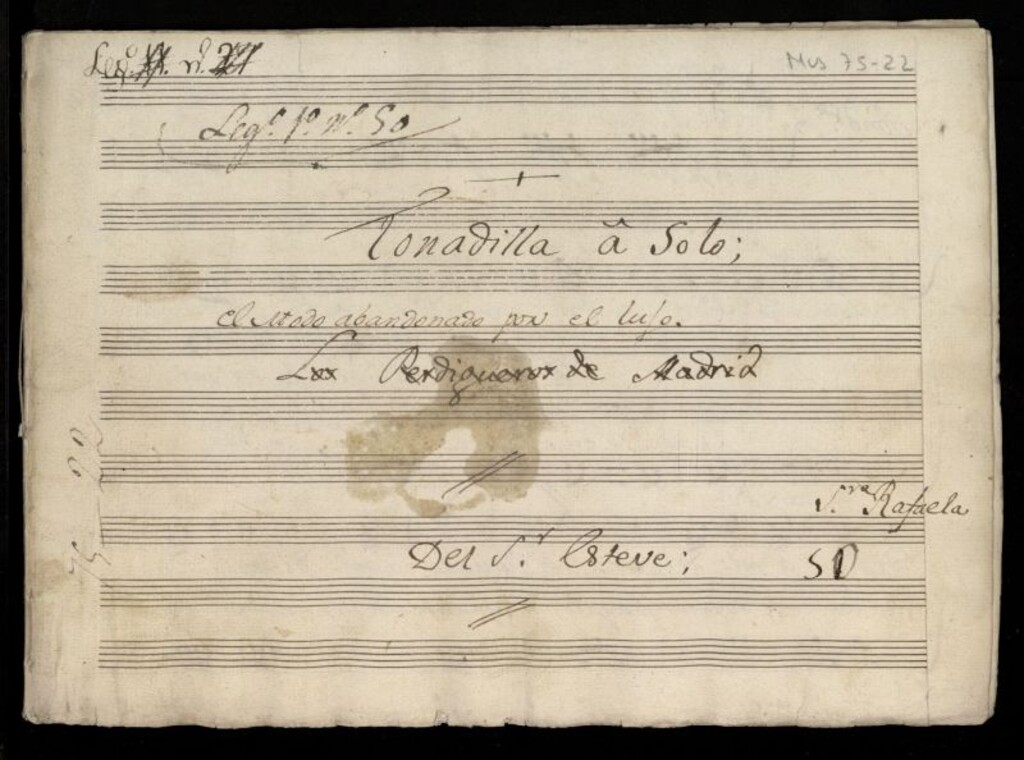 Leg.º n.º
Mus 75-22
Leg.º 1.º n.º 50
Tonadilla â Solo;
el Modo abandonado por el lujo.
Los Perdigueros de Madrid
S.ra Rafaela
Del S.r Esteve;
75 22